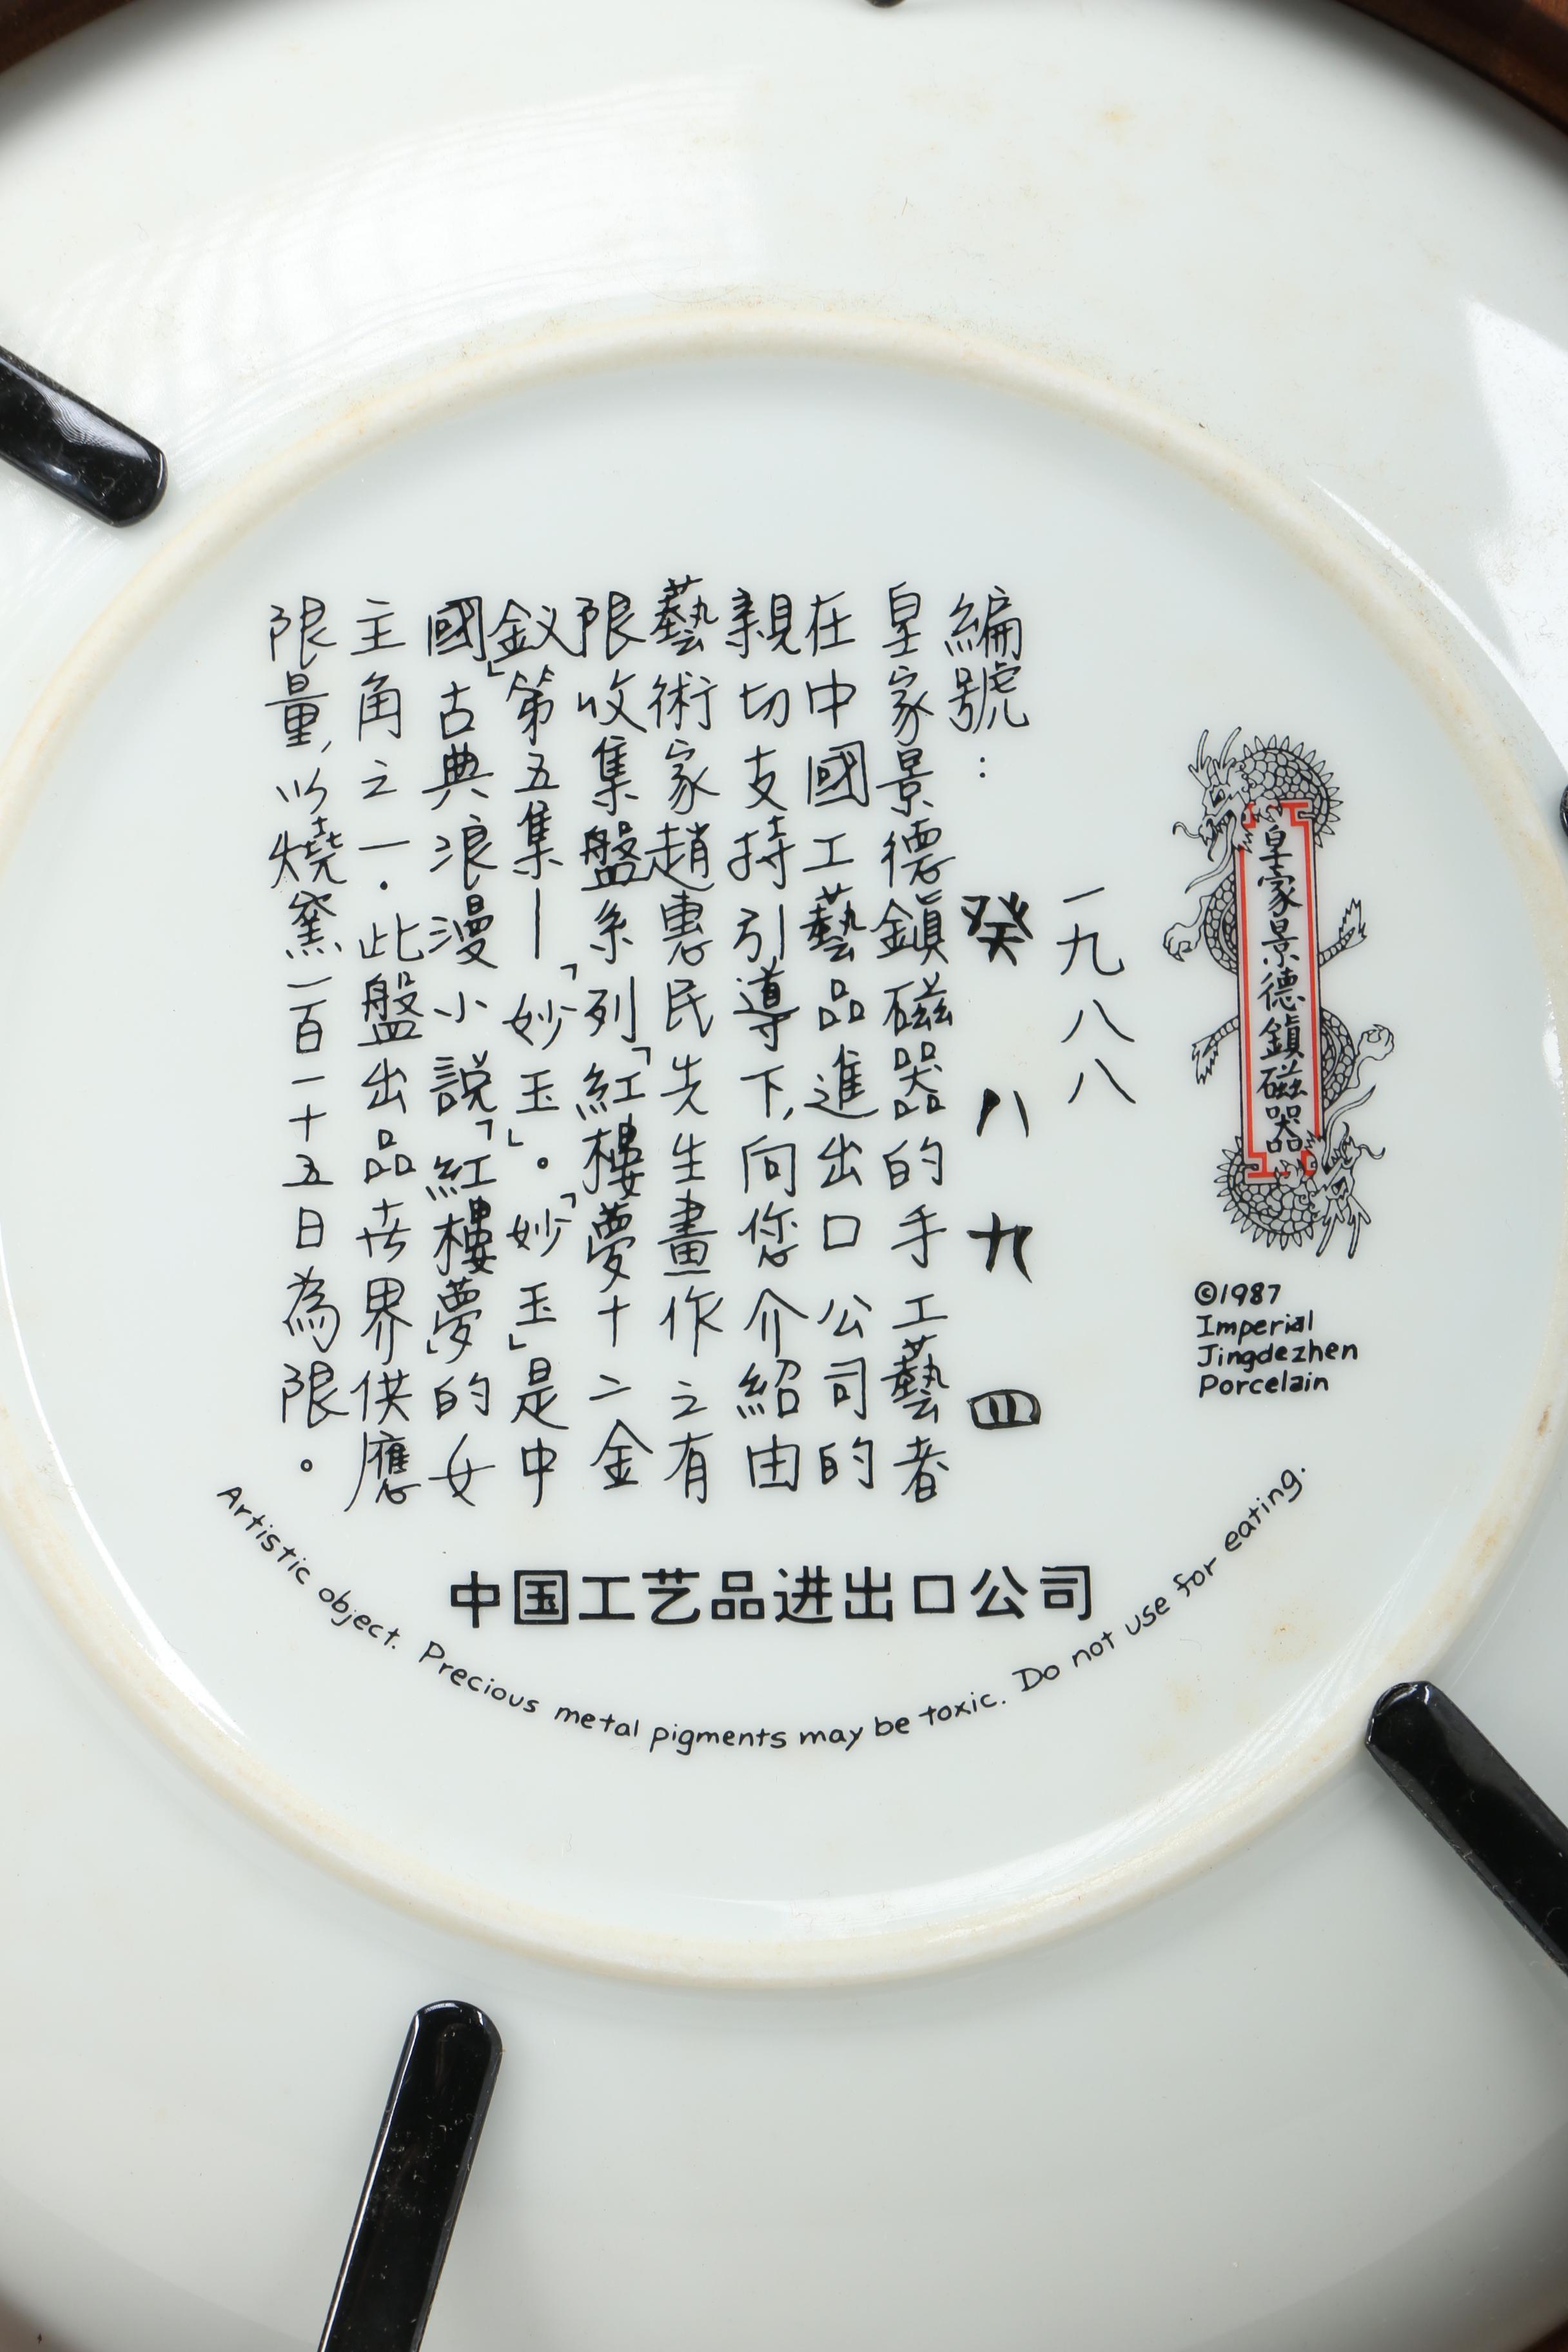 皇家景德鎮磁器
©1987
Imperial
Jingdezhen
Porcelain
一九八八
編號：癸八九四
皇家景德鎮磁器的手工藝者
在中國工藝品進出口公司的
親切支持引導下,向您介紹由
藝術家趙惠民先生畫作之有
限收集盤系列「紅樓夢十二金
釵」第五集—「妙玉」。「妙玉」是中
國古典浪漫小説「紅樓夢」的女
主角之一.此盤出品去界供應
限量,以燒窯一百一十五日為限。
中国工艺品进出口公司
Artistic object. Precious metal pigments may be toxic. Do not use for eating.